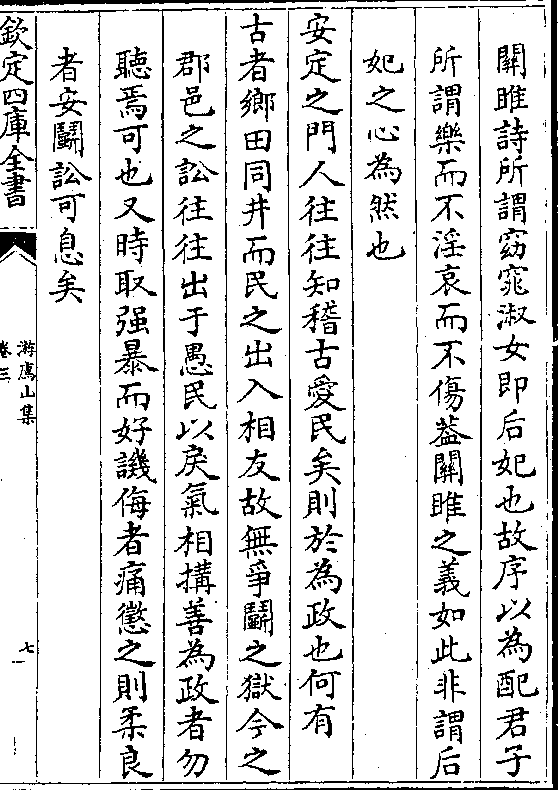 關雎詩所謂窈窕淑女即后妃也故序以為配君子
所謂樂而不淫哀而不傷葢關雎之義如此非謂后
妃之心為然也
安定之門人往往知稽古愛民矣則於為政也何有
古者鄉田同井而民之出入相友故無爭鬭之獄今之
郡邑之訟往往出于愚民以戾氣相搆善為政者勿
聽焉可也又時取强暴而好譏侮者痛懲之則柔良
者安鬭訟可息矣
欽定四庫全書
游廌山集
卷三
七